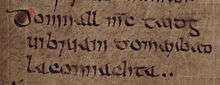 Domnall mc taidg
ui briain domarbad
laconnachta..